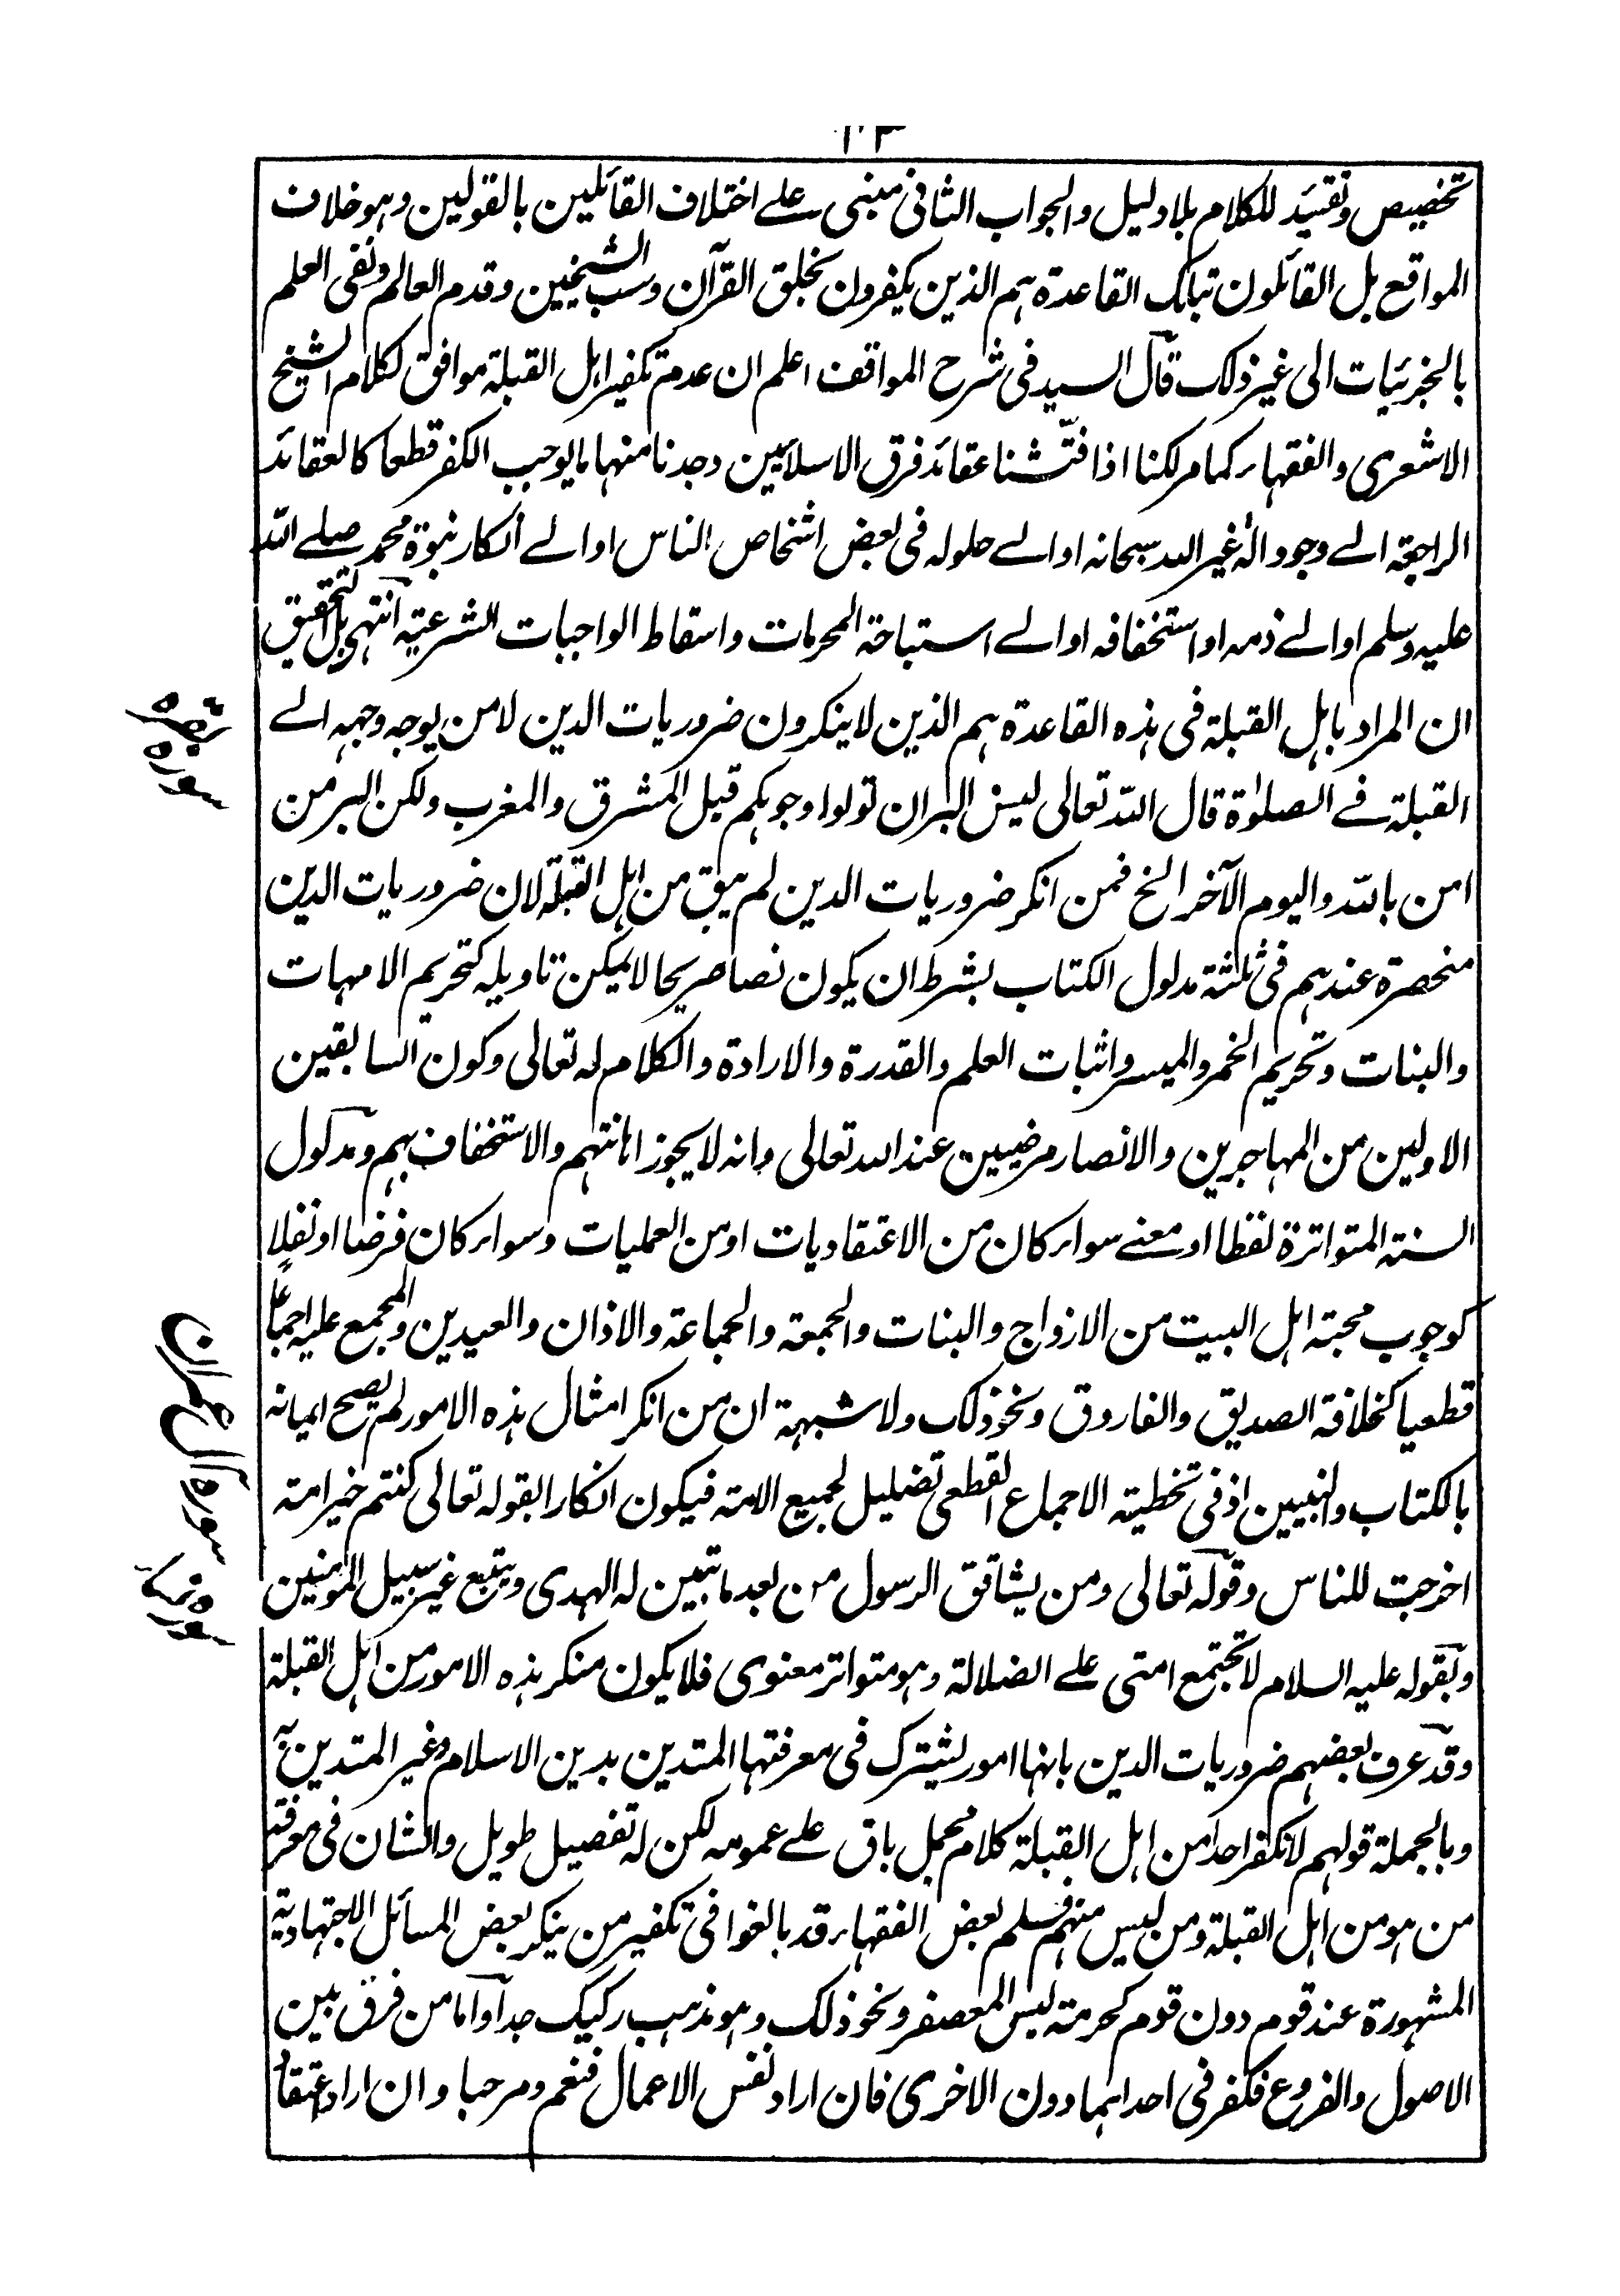 تخصيص وتقييد للكلام بلا دليل والجواب الثانى مبنى على اختلاف القائلين بالقولين وهو خلاف
الواقع بل القائلون بتلك القاعدة هم الذين يكفرون بخلق القرآن وسب الشيخين وقدم العالم ونفى العلم
بالجزئيات الى غير ذلك قال السيد فى شرح المواقف اعلم ان عدم تكفير اهل القبلة موافق لكلام الشيخ
الاشعرى والفقهاء كما مر لكنا اذا فتشنا عقائد فرق الاسلاميين وجدنا منها ما يوجب الكفر قطعا كالعقائد
الراجعة الى وجود اله غير الله سبحانه او الى حلوله فى بعض اشخاص الناس او الى انكار نبوة محمد صلى الله
عليه وسلم او الى ذمه او استخفافه او الى استباحة المحرمات واسقاط الواجبات الشرعية انتهى بل التحقيق
ان المراد باهل القبلة فى هذه القاعدة هم الذين لا ينكرون ضروريات الدين لا من يوجه وجهه الى
القبلة فى الصلوٰة قال الله تعالى ليس البر ان تولوا وجوهكم قبل المشرق والمغرب ولكن البر من
امن بالله واليوم الآخر الخ فمن انكر ضروريات الدين لم يبق من اهل القبلة لان ضروريات الدين
منحصرة عندهم فى ثلثة مدلول الكتاب بشرط ان يكون نصا صريحا لا يمكن تاويله كتحريم الامهات
والبنات وتحريم الخمر والميسر واثبات العلم والقدرة والارادة والكلام له تعالى وكون السابقين
الاولين من المهاجرين والانصار مرضيين عند الله تعالى وانه لا يجوز اهانتهم والاستخفاف بهم ومدلول
السنة المتواترة لفظا او معنى سواء كان من الاعتقاديات او من العمليات وسواء كان فرضا او نفلا
كوجوب محبة اهل البيت من الازواج والبنات والجمعة والجماعة والاذان والعيدين والمجمع عليه اجماعا
قطعيا كخلافة الصديق والفاروق ونحو ذلك ولا شبهة ان من انكر امثال هذه الامور لم يصح ايمانه
بالكتاب والنبيين اذ فى تخطية الاجماع القطعى تضليل لجميع الامة فيكون انكارا لقوله تعالى كنتم خير امة
اخرجت للناس وقوله تعالى ومن يشاقق الرسول من بعد ما تبين له الهدى ويتبع غير سبيل المؤمنين
وبقوله عليه السلام لا تجتمع امتى على الضلالة وهو متواتر معنوى فلا يكون منكر هذه الامور من اهل القبلة
وقد عرف بعضهم ضروريات الدين بانها امور يشترك فى معرفتها المتدين بدين الاسلام وغير المتدين به
وبالجملة قولهم لا نكفر احدا من اهل القبلة كلام مجمل باق على عمومه لكن له تفصيل طويل والشان فى معرفة
من هو من اهل القبلة ومن ليس منهم فسلم بعض الفقهاء قد بالغوا فى تكفير من ينكر بعض المسائل الاجتهادية
المشهورة عند قوم دون قوم كحرمة لبس المعصفر ونحو ذلك وهو مذهب ركيك جدا واما من فرق بين
الاصول والفروع فكفر فى احداهما دون الاخرى فان اراد نفس الاعمال فنعم ومرحبا وان اراد اعتقاد
سوره بقره
سوره آل عمران
سوره نساء